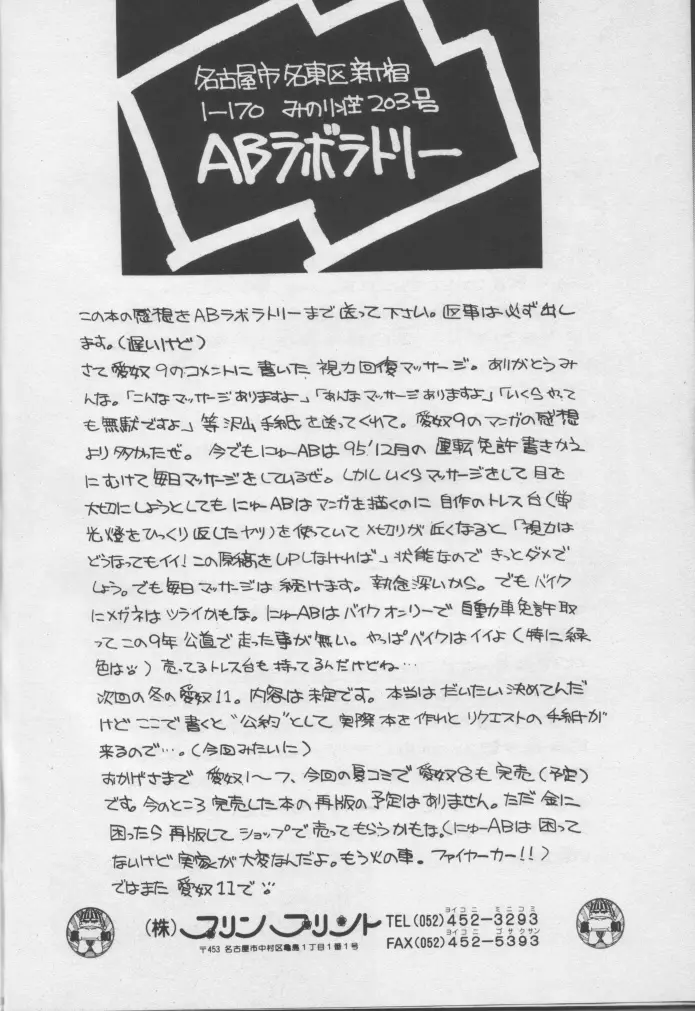 名古屋市名東区新宿
1-170 みのり荘203号
ABラボラトリー
この本の感想をABラボラトリーまで送って下さい。返事は必ず出し
ます。(遅いけど)
さて愛奴9のコメントに書いた視力回復マッサージ。ありがとうみ
んな。「こんなマッサージありますよ」「あんなマッサージありますよ」「いくらやって
も無駄ですよ」等沢山手紙を送ってくれて。愛奴9のマンガの感想
より多かったぜ。今でもにゅーABは95'12月の運転免許書きかえ
にむけて毎日マッサージをしているぜ。しかしいくらマッサージをして目を
大切にしようとしてもにゅーABはマンガを描くのに自作のトレス台(蛍
光燈をひっくり返したヤツ)を使っていて〆切りが近くなると「視力は
どうなってもイイ!この原稿をUPしなければ」状態なのできっとダメで
しょう。でも毎日マッサージは続けます。執念深いから。でもバイク
にメガネはツライかもな。にゅーABはバイクオンリーで自動車免許取
ってこの9年公道で走った事が無い。やっぱバイクはイイよ(特に緑
色は)売ってるトレス台も持ってるんだけどね…
次回の冬の愛奴11。内容は未定です。本当はだいたい決めてんだ
けどここで書くと"公約"として実際本を作れとリクエストの手紙が
来るので…。(今回みたいに)
おかげさまで 愛奴1〜7、今回の夏コミで愛奴8も完売(予定)
です。今のところ完売した本の再版の予定はありません。ただ金に
困ったら再版してショップで売ってもらうかもな。(にゅーABは困って
ないけど実家が大変なんだよ。もう火の車。ファイヤーカー!!)
ではまた愛奴11で
(株)プリンプリント
〒453 名古屋市中村区亀島1丁目1番1号
ヨイコニ ミニコミ
TEL(052)452-3293
ヨイコニ ゴサクサン
FAX(052)452-5393